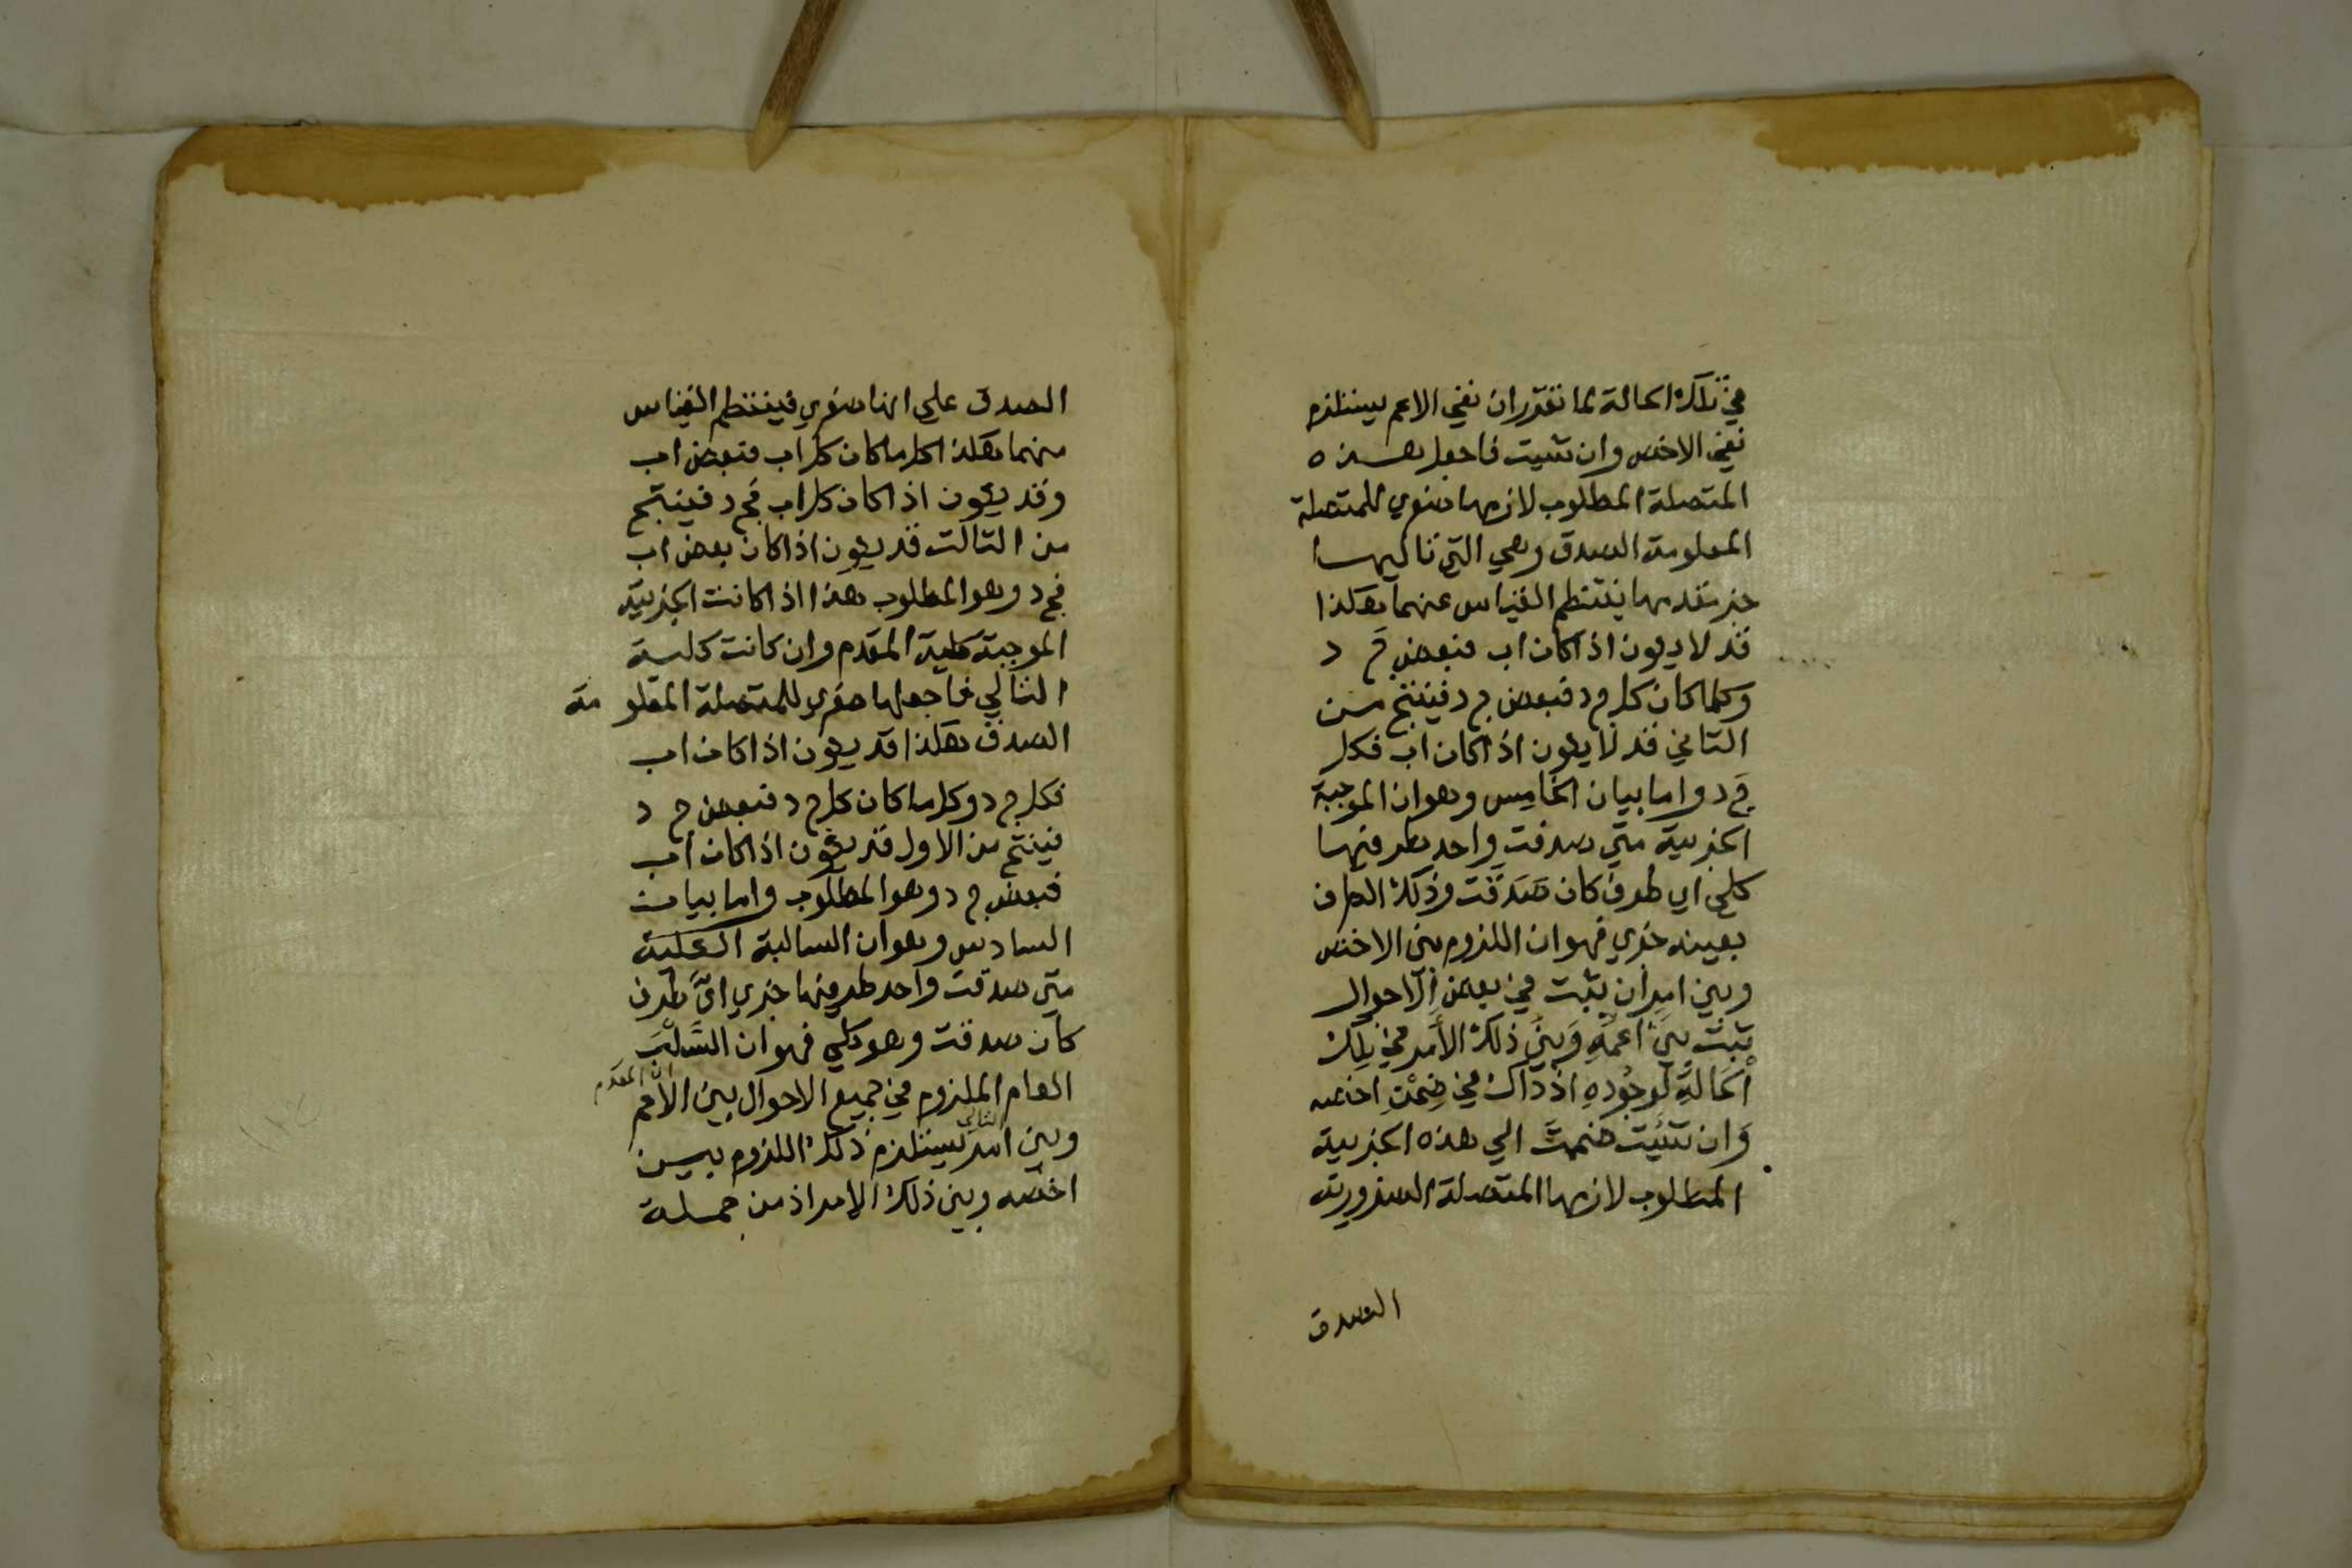 في تلك الحالة لما تقرر ان نفي الاعم يستلزم
نفي الاخص وان شيت فاجعل هذه
المتصلة المطلوب لازمها صغري للمتصلة
المعلومة الصدق وهي التي تاليها
جزء مقدمها ينتظم القياس عنهما هكذا
قد لا يكون اذا كان اب فبعض ج د
وكلما كان كل ج د فبعض ج د فينتج من
الثاني قد لا يكون اذا كان اب فكل
ج د واما بيان الخامس وهو ان الموجبة
الجزيية متي صدقت واحد طرفيها
كلي اي طرف كان صدقت وذلك الطرف
بعينه جزي فهو ان اللزوم بين الاخص
وبين امر ان يثبت في بعض الاحوال
ثبت بين اعمه وبين ذلك الأمر في تلك
الحالة لوجوده اذ ذاك في ضمن اخصه
وان شئت ضممت الي هذه الجزيية
المطلوب لازمها المتصلة الضرورية
الصدق
الصدق علي انها صغري فينتظم القياس
منهما هكذا كلما كان كل اب فبعض اب
وقد يكون اذا كان كل اب فج د فينتج
من الثالث قد يكون اذا كان بعض اب
فج د وهو المطلوب هذا اذا كانت الجزيية
الموجبة كلية المقدم وان كانت كلية
التالي فاجعلها صغري للمتصلة المعلومة
الصدق هكذا قد يكون اذا كان اب
فكل ج د وكلما كان كل ج د فبعض ج د
فينتج من الاول قد يكون اذا كان اب
فبعض ج د وهو المطلوب واما بيان
السادس وهو ان السالبة الكلية
متي صدقت واحد طرفيها جزي اي طرف
كان صدقت وهو كلي فهو ان السلب
العام للزوم في جميع الاحوال بين الأعم
اي المقدم
وبين امر يستلزم ذلك اللزوم بين
التالي
اخصه وبين ذلك الامر اذ من جملة